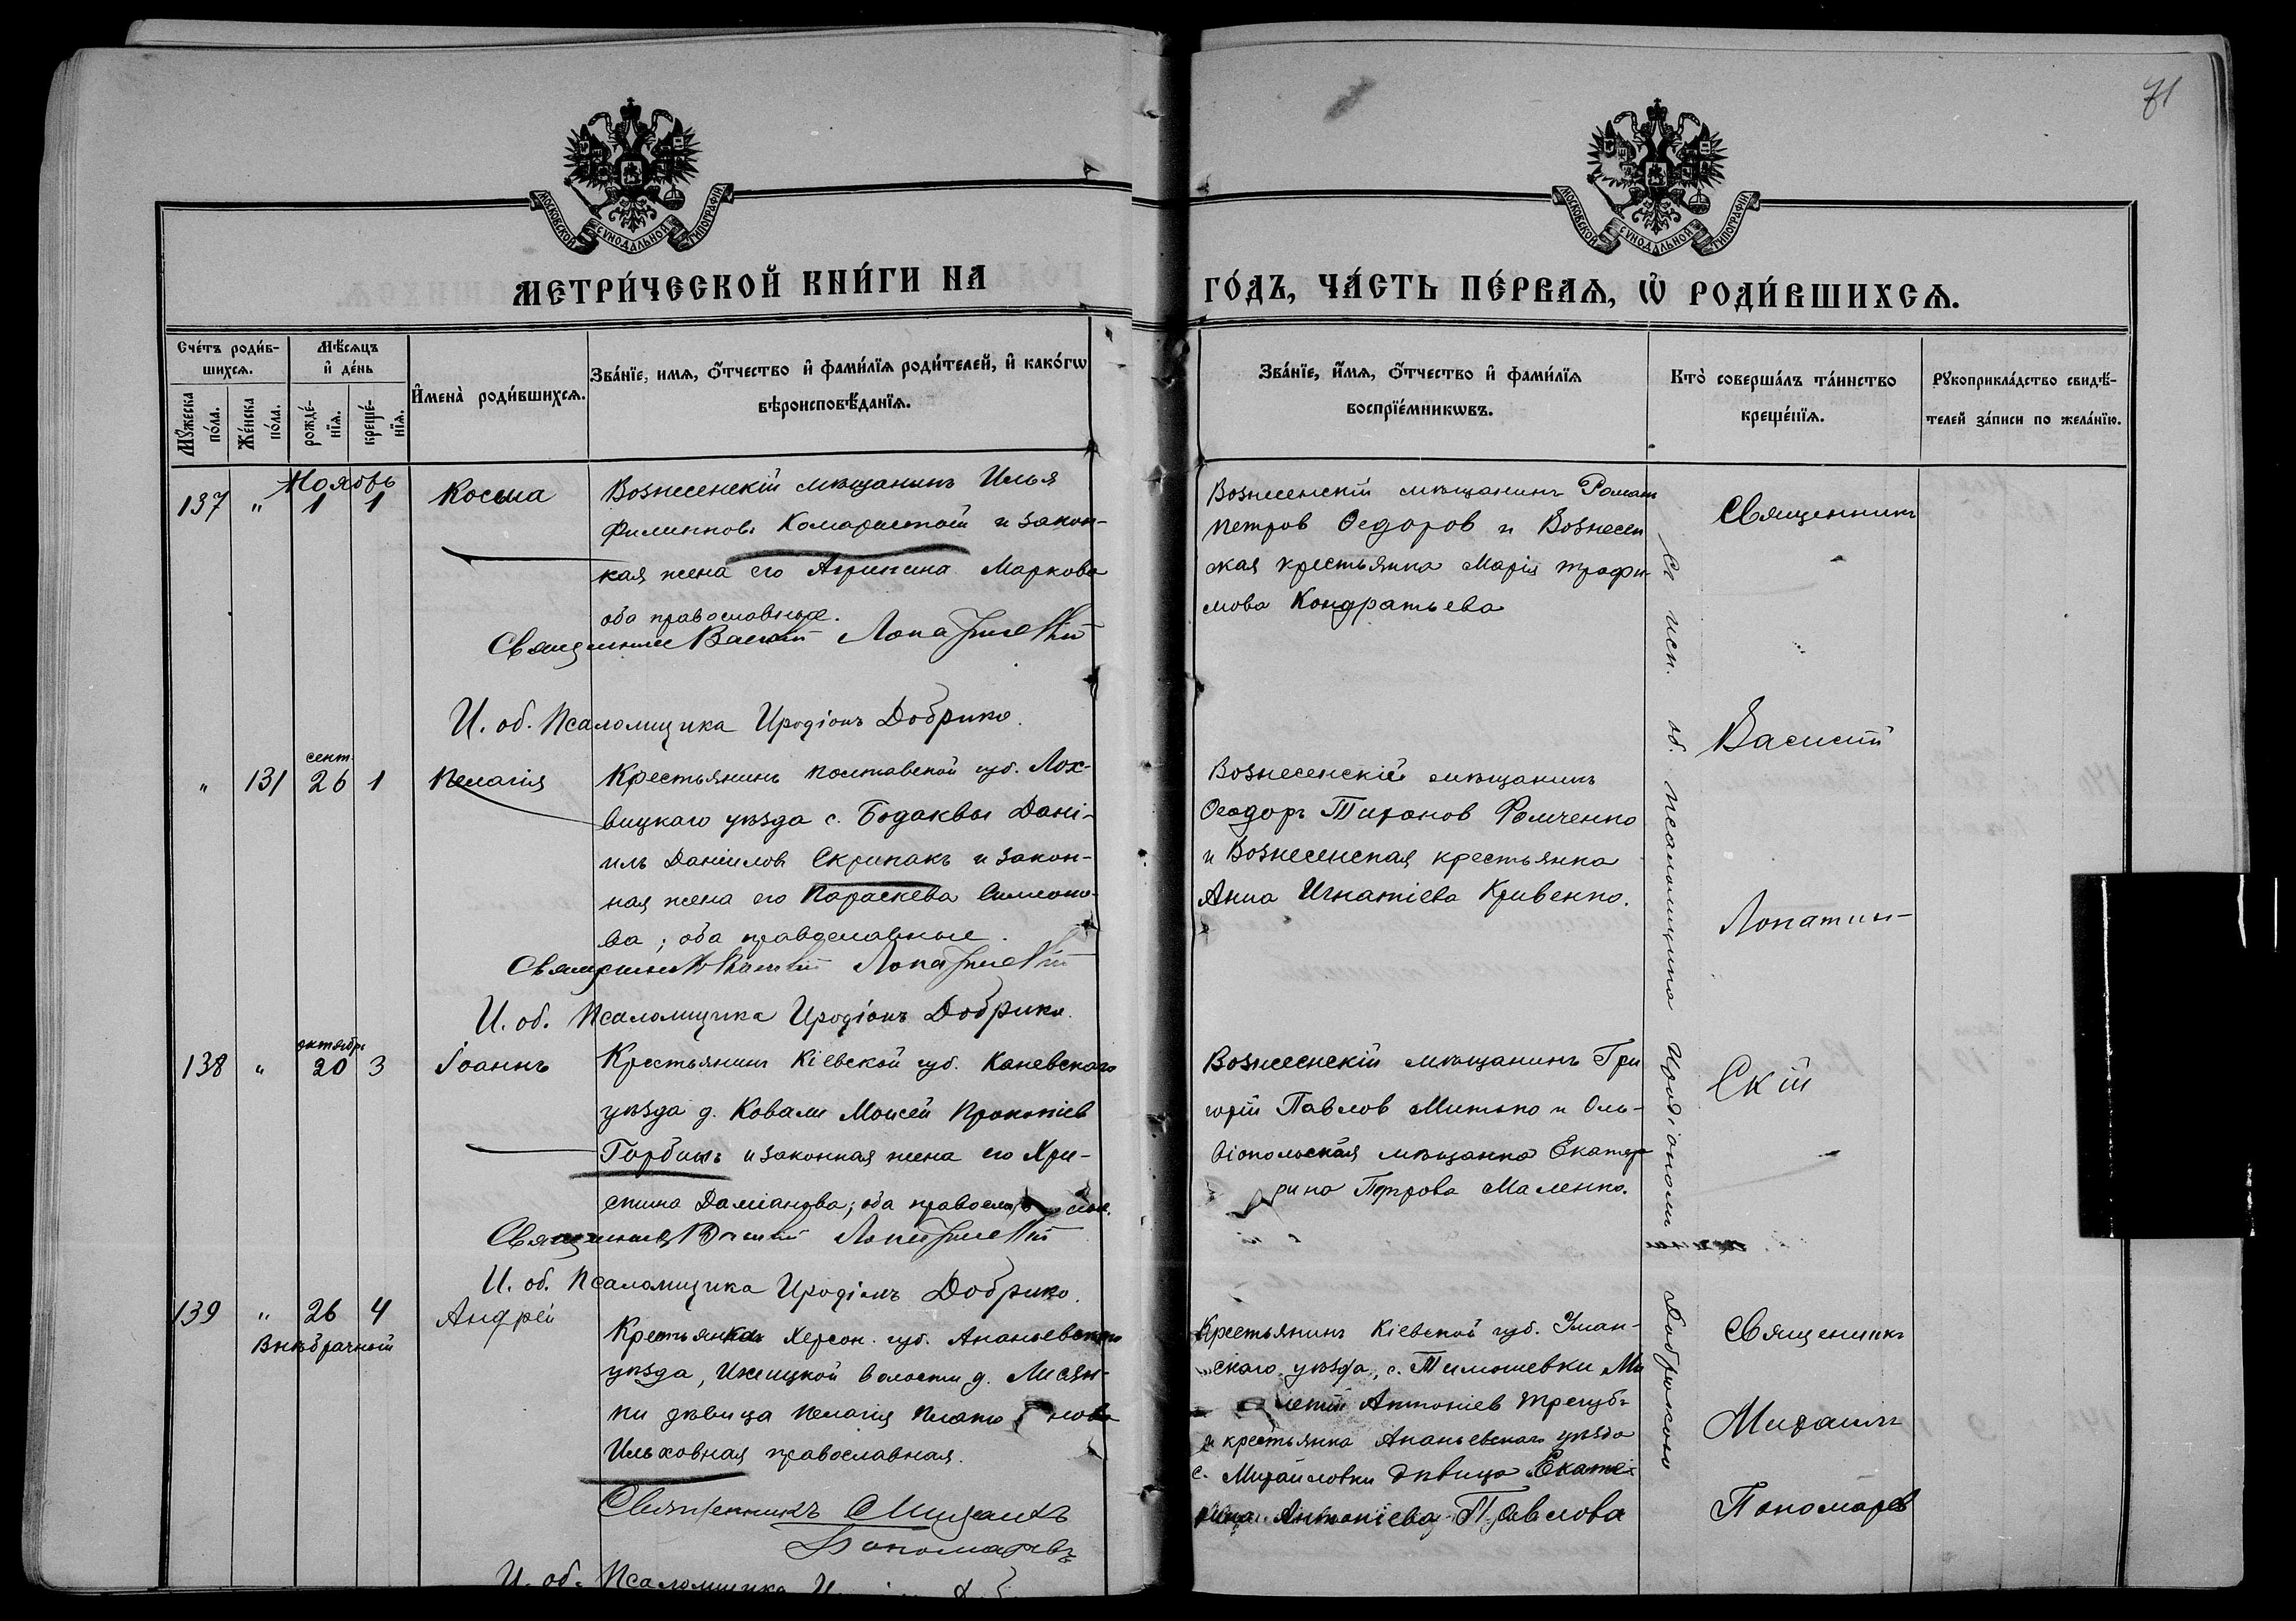 71
МОСКОВСКОЙ СУНОДАЛЬНОЙ ТИПОГРАФІИ
МОСКОВСКОЙ СУНОДАЛЬНОЙ ТИПОГРАФІИ
МЕТРИ́ЧЕСКОЙ КНИ́ГИ НА
ГО́ДЪ, ЧА́СТЬ ПЕ́РВАѦ, Ѡ҆ РОДИ́ВШИХСѦ.
Сче́тъ роди́в-
шихсѧ.
Мѣ́сѧцъ
и҆ де́нь
Мꙋ́жеска
по́ла.
Же́нска
по́ла.
рожде́-
нїѧ.
креще́-
нїѧ.
И҆мена̀ роди́вшихсѧ.
Зва́нїе, имѧ, ѻ҆́тчество и҆ фами́лїѧ роди́телей, и҆ како́гѡ
вѣроисповѣ́данїѧ.
Зва́нїе, и҆́мѧ, ѻ҆́тчество и҆ фами́лїѧ
воспрїе́мникѡвъ.
Кто̀ соверша́лъ та́инство
креще́нїѧ.
Рꙋкоприкла́дство свидѣ́-
телей за́писи по жела́нїю.
Ноябрь
137 " 1 1 Косьма
Вознесенскій мѣщанинъ Илья
Филиппов Комаристый и закон-
ная жена его Агрипина Маркова
оба православные.
Священник Василій Лопатинскій
И. об. Псаломщика Иродіонъ Добрико.
Вознесенскій мѣщанинъ Роман
Петров Ѳедоров и Вознесен
ская крестьянка Марія Трофи-
мова Кондратьева
Священникъ
Василій
Лопатин-
скій
сент.
" 131 26 1 Пелагія
Крестьянинъ Полтавской губ. Лох-
вицкаго уѣзда с. Бодаквы Дані-
илъ Даніилов Скрипакъ и закон-
ная жена его Параскева Симеоно-
ва; оба православные.
Священникъ Василій Лопатинскій
И. об. Псаломщика Иродіонъ Добрико.
Вознесенскій мѣщанинъ
Ѳеодоръ Тихонов Фомченко
и Вознесенская крестьянка
Анна Игнатіева Кривенко.
октября
138 " 20 3 Іоаннъ
Крестьянинъ Кіевской губ. Каневскаго
уѣзда д. Ковали Моисей Прокопіев
Горбань и законная жена его Хри-
стина Даміанова; оба православные.
Священник Василій Лопатинскій
И. об. Псаломщика Иродіонъ Добрико.
Вознесенскій мѣщанинъ Гри
горій Павлов Митько и Оль-
віопольская мѣщанка Екате
рина Петрова Маленко.
139 " 26 4 Андрей
Внѣбрачный
Крестьянка Херсон. губ. Ананьевскаго
уѣзда, волости д.
ки дѣвица Пелагія Платонова
Ильховная православная.
Священникъ Михаилъ
Пономаревъ
И. об. Псаломщика
Крестьянинъ Кіевской губ. Уман-
скаго уѣзда, с. Тимошевки
Антоніев Трегубъ
и крестьянка Ананьевскаго уѣзда
с. Михайловки дѣвица Екате-
рина Антоніева Павлова
Священникъ
Михаилъ
Пономарев
Съ исп. об. псаломщика Иродіономъ Добрикою